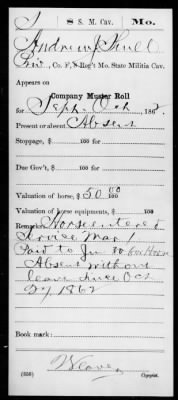 S | 8 S. M. Cav. | Mo.
Andrew J Shull
Pri, Co. F, 8 Reg't Mo. State Militia Cav.
Appears on
Company Muster Roll
for Sept Oct, 186 .
Present or absent Absent
Stoppage, $ 100
Due Gov't, $ 100
Valuation of horse, $ 50 00/100
Valuation of horse equipments, $ 100
Remarks: Horse entered
Service Mar 1
Paid to Jun 30 for Horse
Absent without
leave since Oct
27 1862
Book mark:
Weaver
(858) Copyist.